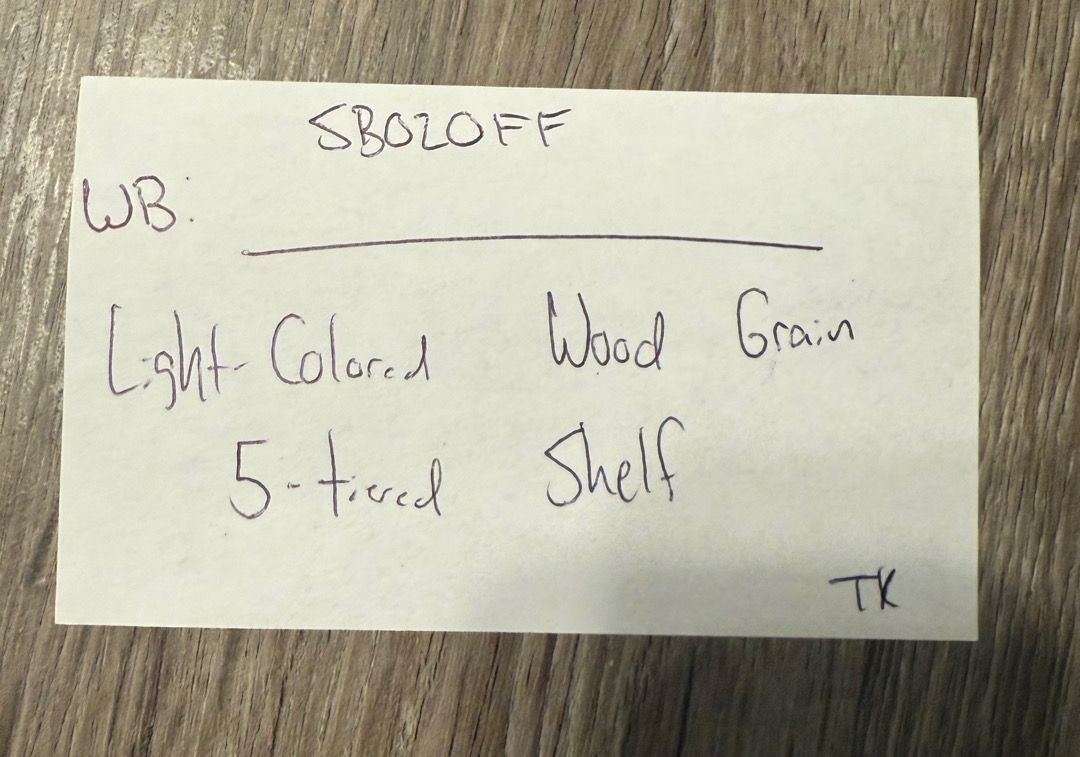 SB020FF
WB:
Light-Colored Wood Grain
5-tiered Shelf
TK